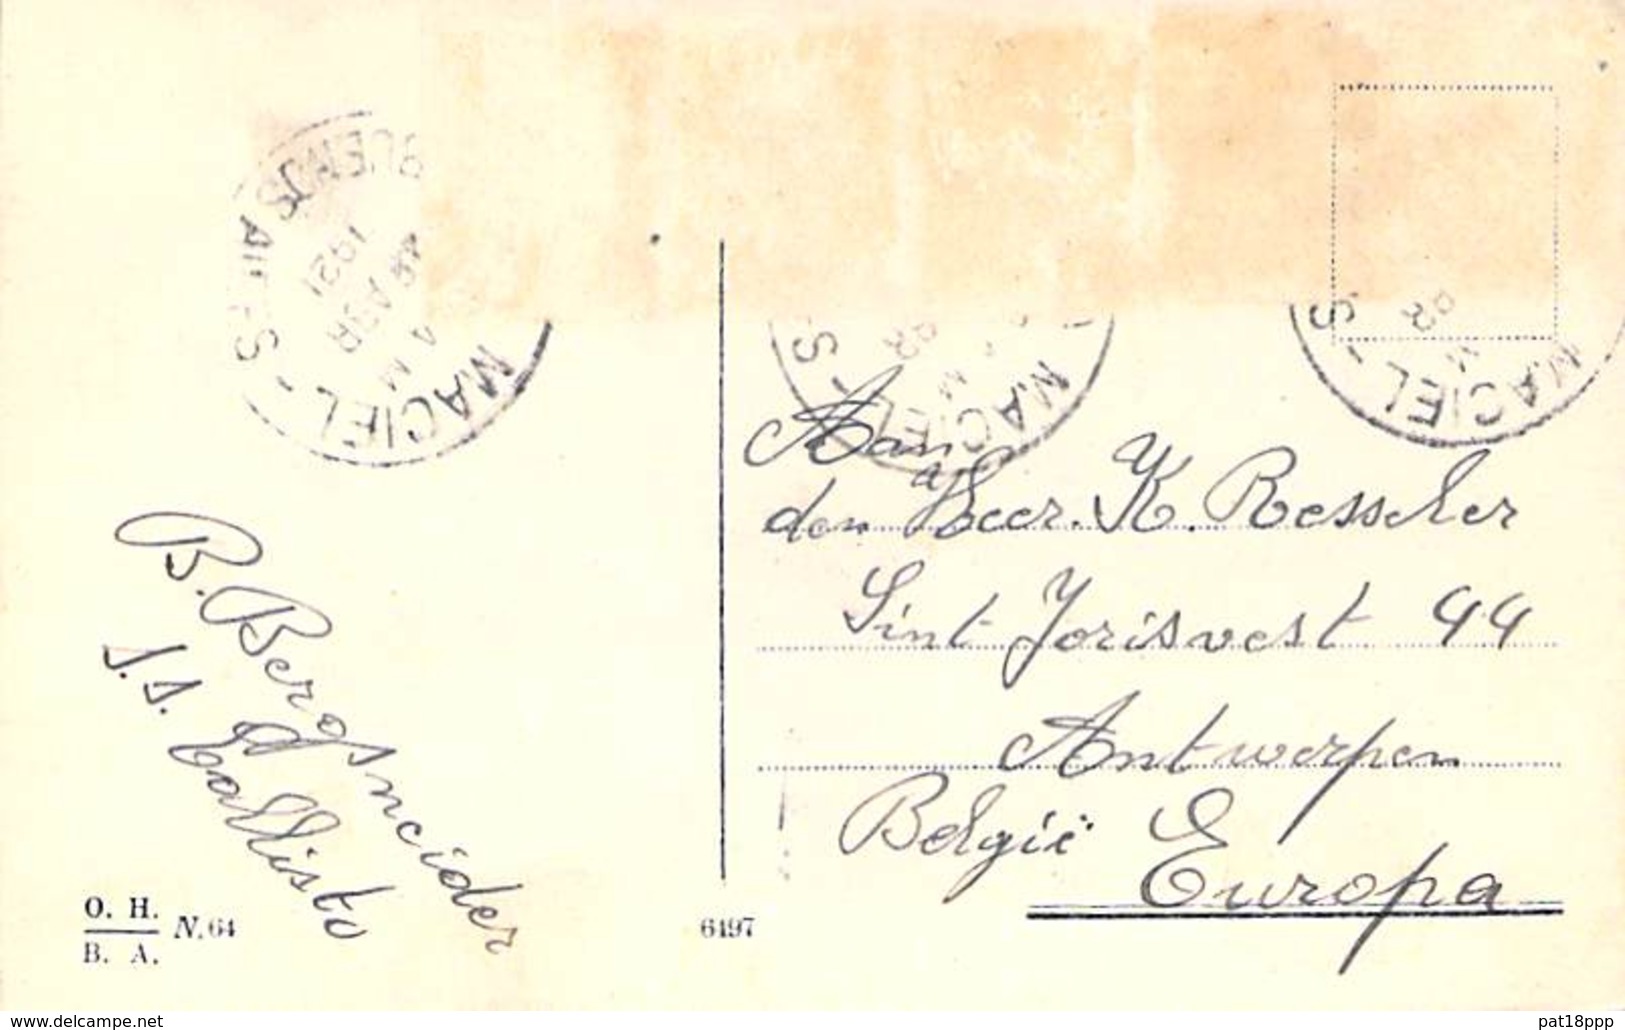 BUENOS AIRES
1921
ABR
MACIEL - S
MACIEL - S
MACIEL - S
Aan
den Heer. K. Resseler
Sint Jorisvest 44
Antwerpen
België Europa
B. Bergsneider
S.S. Callisto
O. H.
B. A.
N. 64
6497
www.delcampe.net
pat18ppp